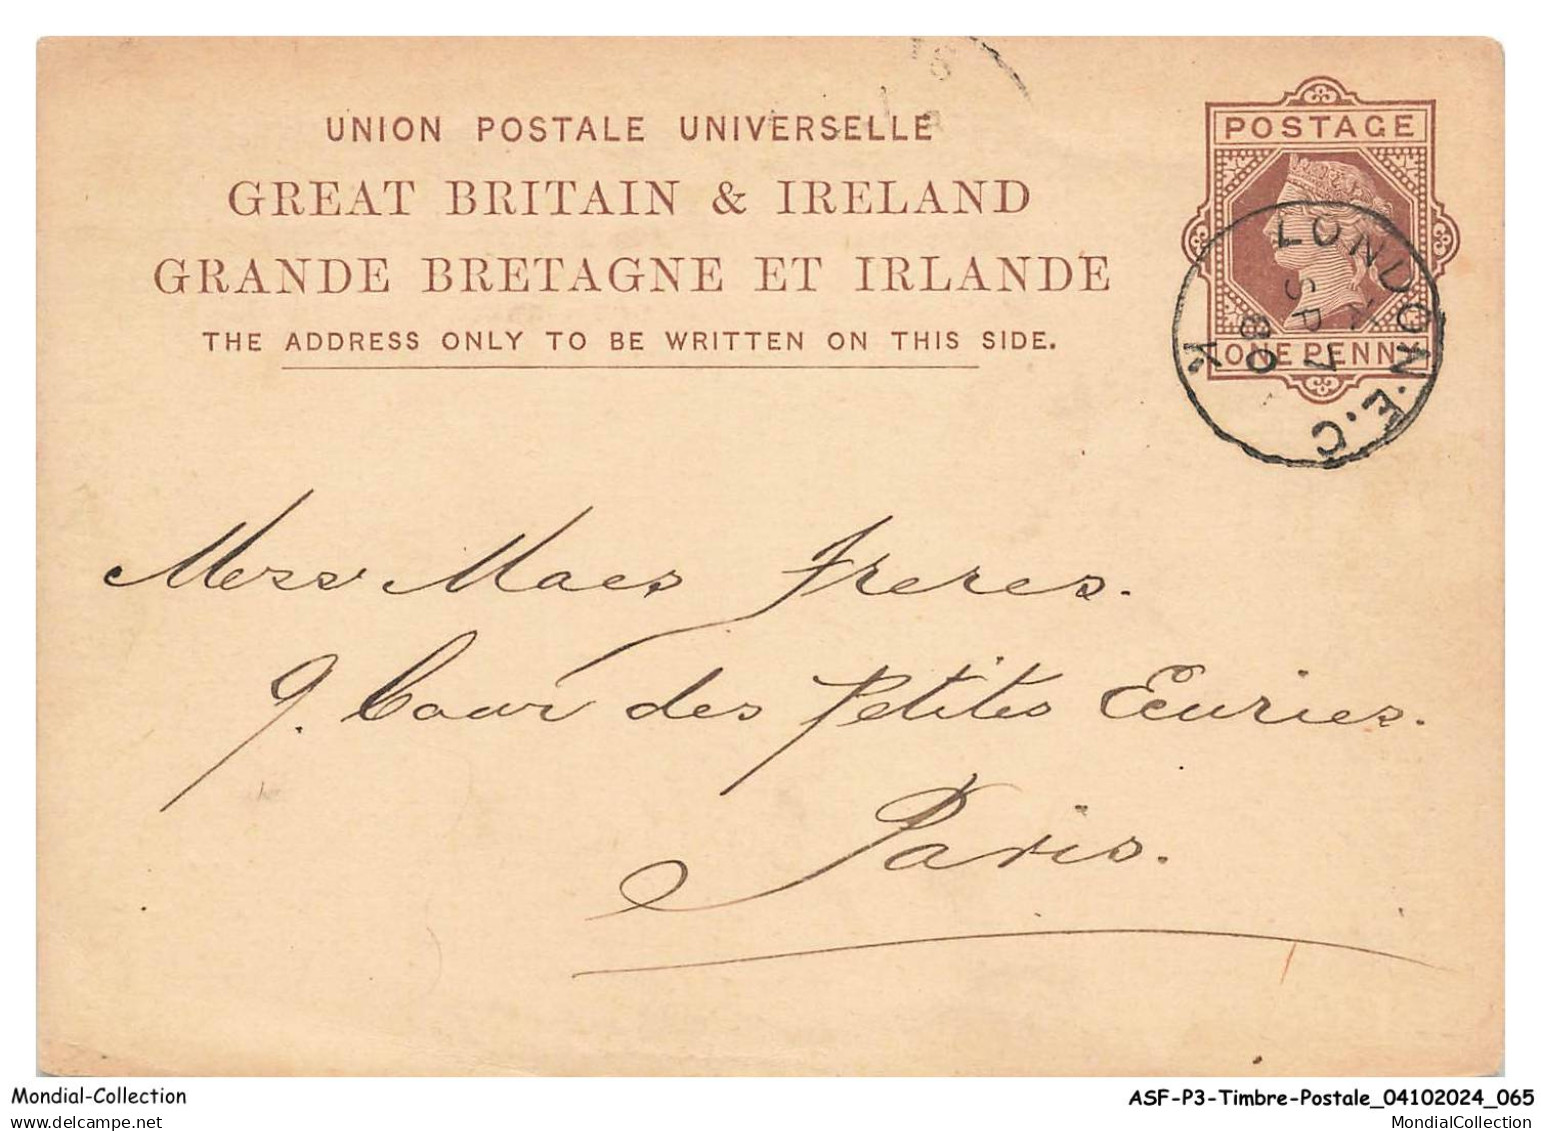 UNION POSTALE UNIVERSELLE
GREAT BRITAIN & IRELAND
GRANDE BRETAGNE ET IRLANDE
THE ADDRESS ONLY TO BE WRITTEN ON THIS SIDE.
POSTAGE
ONE PENNY
LONDON.E.C
K
SP 7
80
Mess Maes Freres.
9. Cour des Petites Ecuries.
Paris.
Mondial-Collection
delcampe.net
ASF-P3-Timbre-Postale_04102024_065
MondialCollection